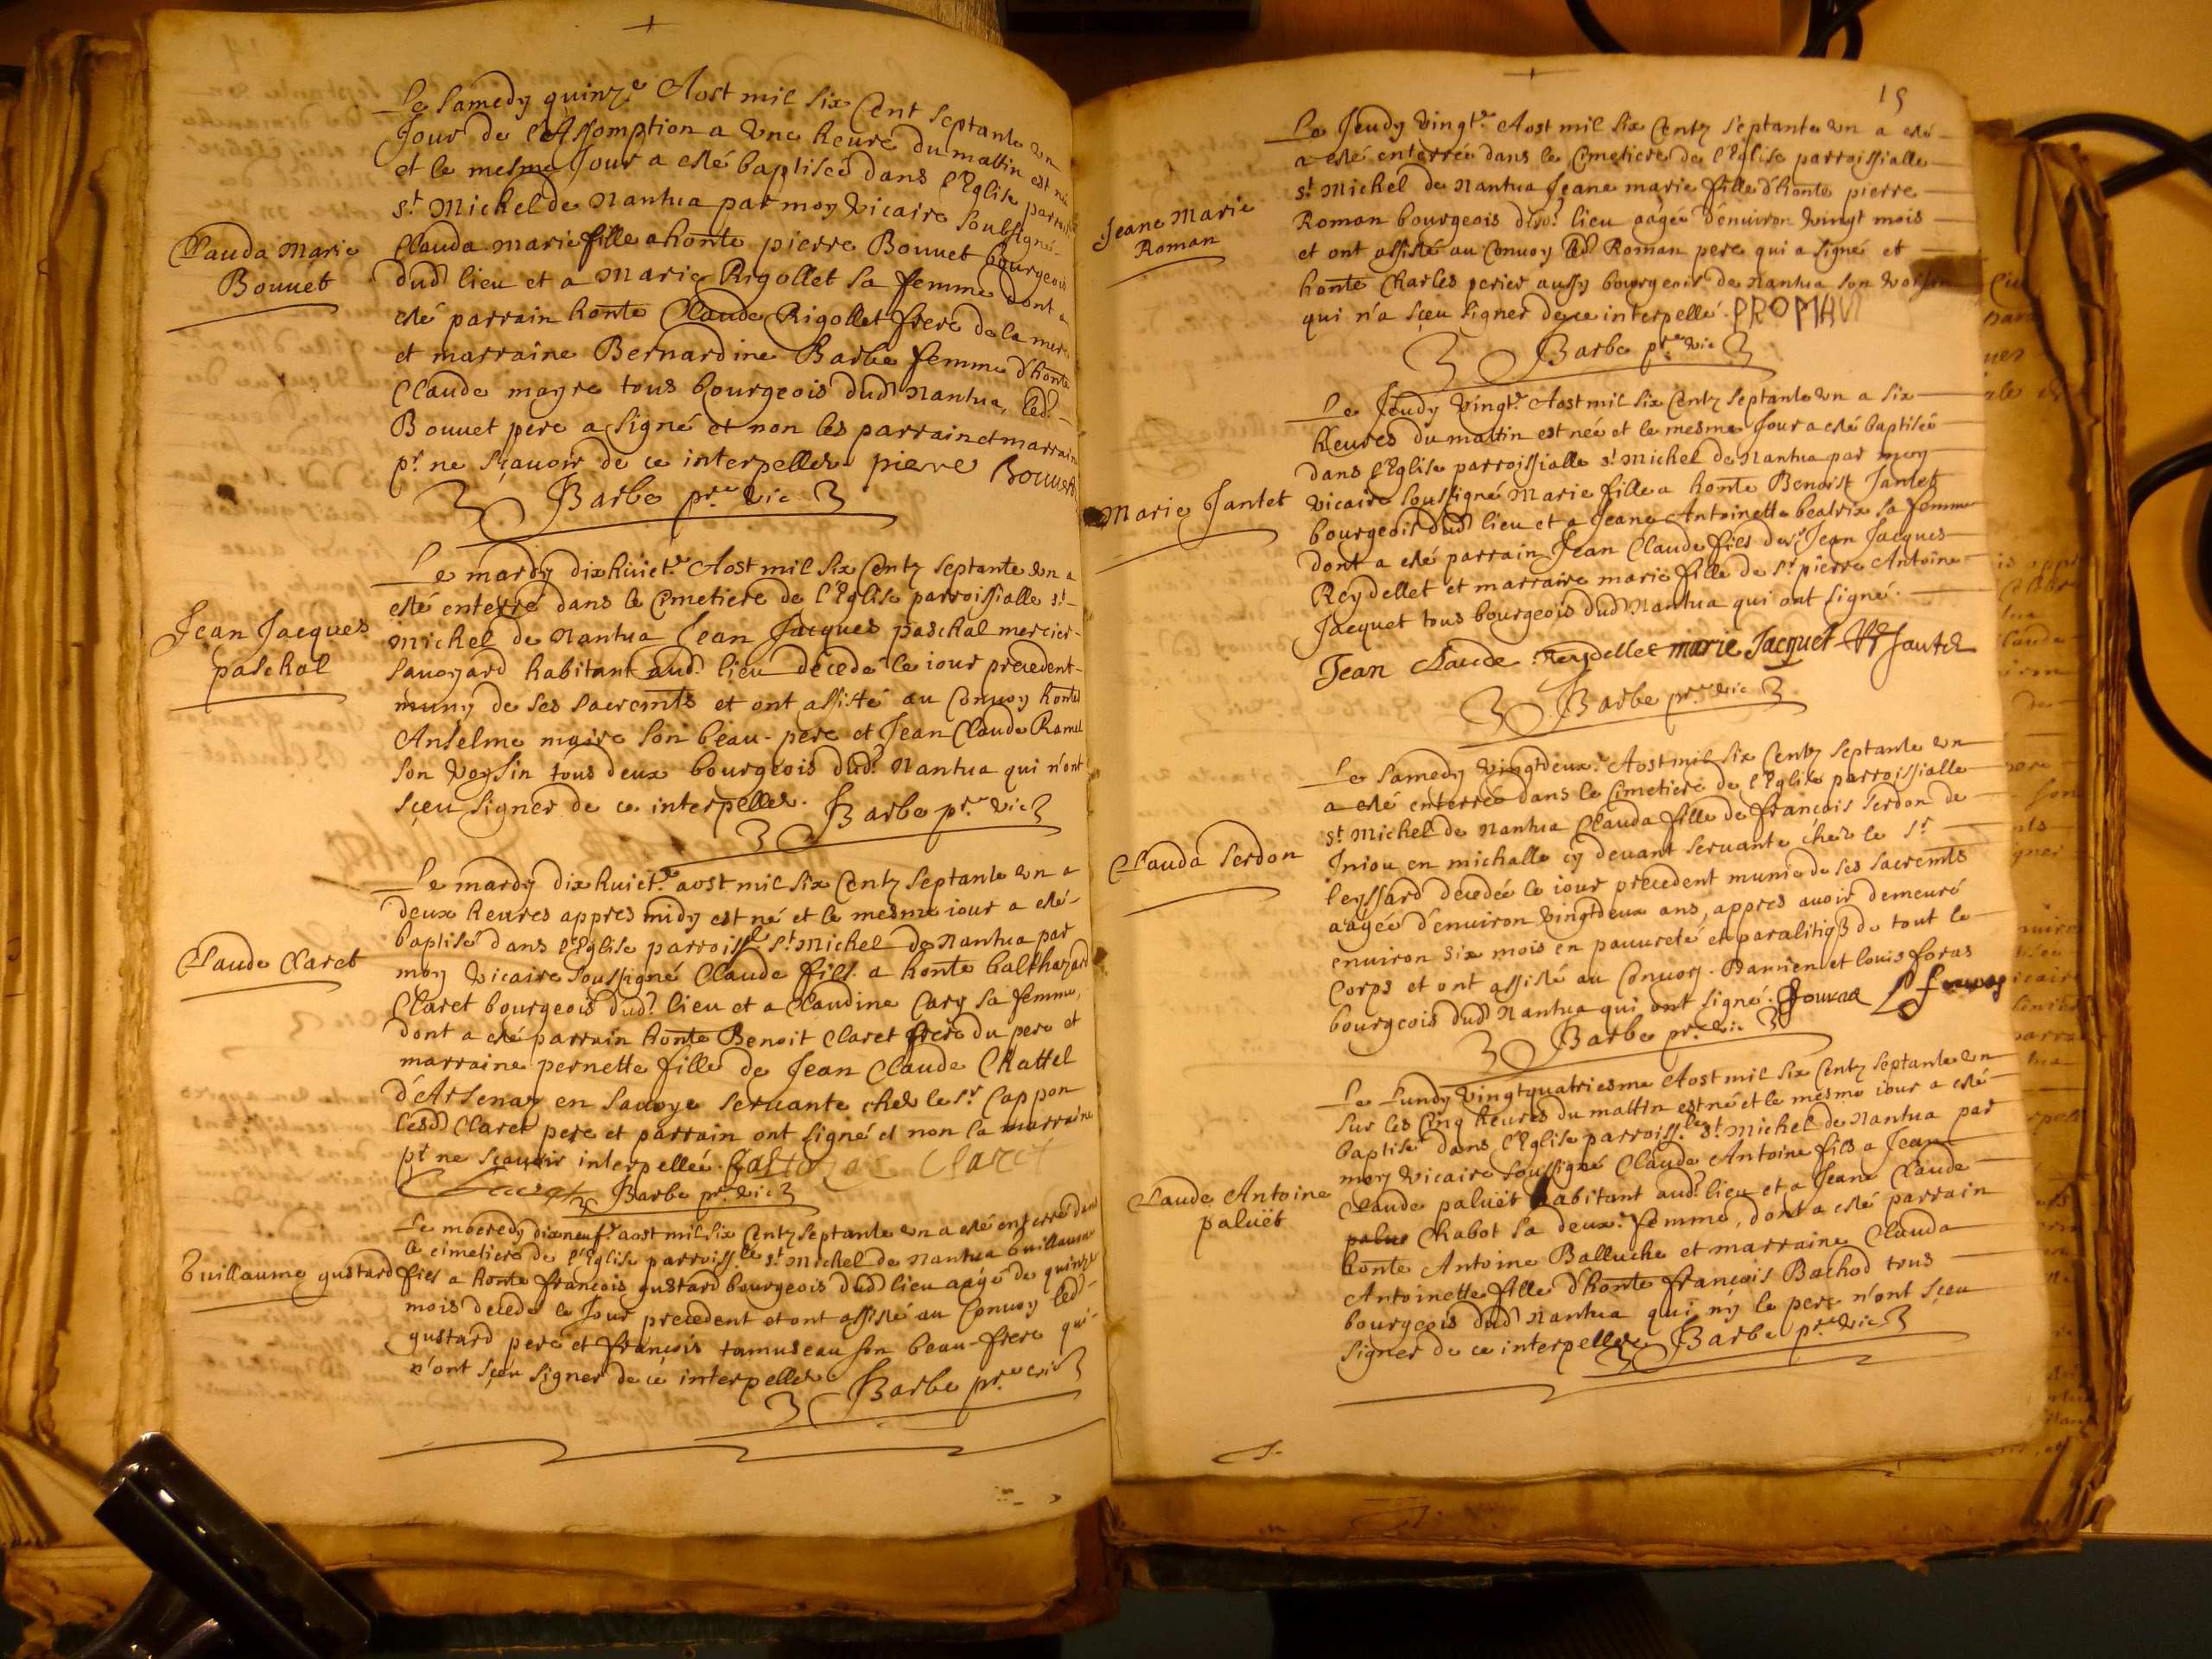 Le Samedy quinz.e Aost mil six Cent septante un
Jour de l'Assomption a une heure du mattin est née
et le mesme Jour a esté baptisée dans l'Eglise parroiss
st Michel de Nantua par moy vicaire soubsigné
Clauda Marie
Bouuet
Clauda marie fille a honte pierre Bouuet bourgeois
dud lieu et a Marie Rigollet sa femme dont a
esté parrain honte Claude Rigollet frere de la mere
et marraine Bernardine Barbe femme d'honte
Claude mayre tous bourgeois dud nantua, led.
Bouuet pere a signé et non les parrain et marraine
pr ne sçauoir de ce interpelles pierre Bouuet
Barbe pre vic
Le mardy dixhuiet.e Aost mil six Centz septante un a
esté enterré dans le Cimetiere de l'Eglise parroissialle st
Jean Jacques
paschal
Michel de Nantua Jean Jacques paschal mercier
sauoyard habitant aud. lieu decedé le iour precedent
muny de ses sacremts et ont assisté au Conuoy hontes
Anselme maire son beau-pere et Jean Claude Ramel
son voysin tous deux bourgeois dud. Nantua qui n'ont
sçeu signer de ce interpelles. Barbe pre vic
Le mardy dix huiet.e aost mil six Centz septante un a
deux heures appres midy est né et le mesme iour a esté
baptisé dans l'Eglise parroissle st Michel de Nantua par
Claude Claret
moy vicaire soussigné Claude fils a honte balthazard
Claret bourgeois dud. lieu et a Claudine Cary sa femme,
dont a esté parrain honte Benoit Claret frere du pere et
marraine pernette fille de Jean Claude Chattel
d'Arsenay en Sauoye seruante chez le sr Cappon
lesd Claret pere et parrain ont signé et non la marraine
pr ne sçauoir interpellée. Claret
Barbe pre vic
Le mecredy dixneuf.e aost mil six Centz septante un a esté enterré dans
le cimetiere de l'Eglise parroiss.le st Michel de Nantua Guillaume
Guillaume gustard
fils a honte françois gustard bourgeois dud lieu aagé de quinze
mois decedé le Jour precedent et ont assisté au Conuoy led
gustard pere et françois tamuseau son beau-frere qui
n'ont sçeu signer de ce interpelles Barbe pre vic
15
Le Jeudy vingt.e Aost mil six Centz septante un a esté
a esté enterrée dans le Cimetiere de l'Eglise parroissialle
st Michel de Nantua Jeane marie fille d'honte pierre
Jeane Marie
Roman
Roman bourgeois dud. lieu aagée d'enuiron vingt mois
et ont assisté au Conuoy led Roman pere qui a signé et
honte Charles perier aussy bourgeois de nantua son voisin
qui n'a sçeu signer de ce interpellé.
Barbe pre vic
Le Jeudy vingt.e Aost mil six Centz septante un a six
heures du mattin est née et le mesme Jour a esté baptisée
dans l'Eglise parroissialle st Michel de Nantua par moy
Marie Jantet
vicaire soussigné Marie fille a honte Benoist Jantet
bourgeois dud lieu et a Jeane Antoinette beatrix sa femme
dont a esté parrain Jean Claude fils de sr Jean Jacques
Reydellet et marraine marie fille de sr pierre Antoine
Jacquet tous bourgeois dud Nantua qui ont signé.
Jean Claude Reydellet marie Jacquet Jantet
Barbe pre vic
Le Samedy vingtdeux.e Aost mil six Centz septante un
a esté enterrée dans le Cimetiere de l'Eglise parroissialle
st Michel de Nantua Clauda fille de françois Serdon de
Clauda Serdon
Iniou en michalle cy deuant seruante chez le sr
leyssard decedée le iour precedent munie de ses sacremts
aagée d'enuiron vingtdeux ans, appres auoir demeuré
enuiron six mois en pauureté et paralitiq3 de tout le
Corps et ont assisté au Conuoy. Damien et louis foras
bourgeois dud Nantua qui ont signé.
Barbe pre vic
Le Lundy vingtquatriesme Aost mil six Centz septante un
sur les Cinq heures du mattin est né et le mesme iour a esté
baptisé dans l'Eglise parroiss.le st Michel de Nantua par
moy vicaire soussigné Claude Antoine fils a Jean
Claude Antoine
paluët
Claude paluët habitant aud. lieu et a Jeane Claude
palue Chabot sa deux.e femme, dont a esté parrain
honte Antoine Balluche et marraine Clauda
Antoinette fille d'honte françois Bachod tous
bourgeois dud Nantua qui ny le pere n'ont sçeu
signer de ce interpelles Barbe pre vic